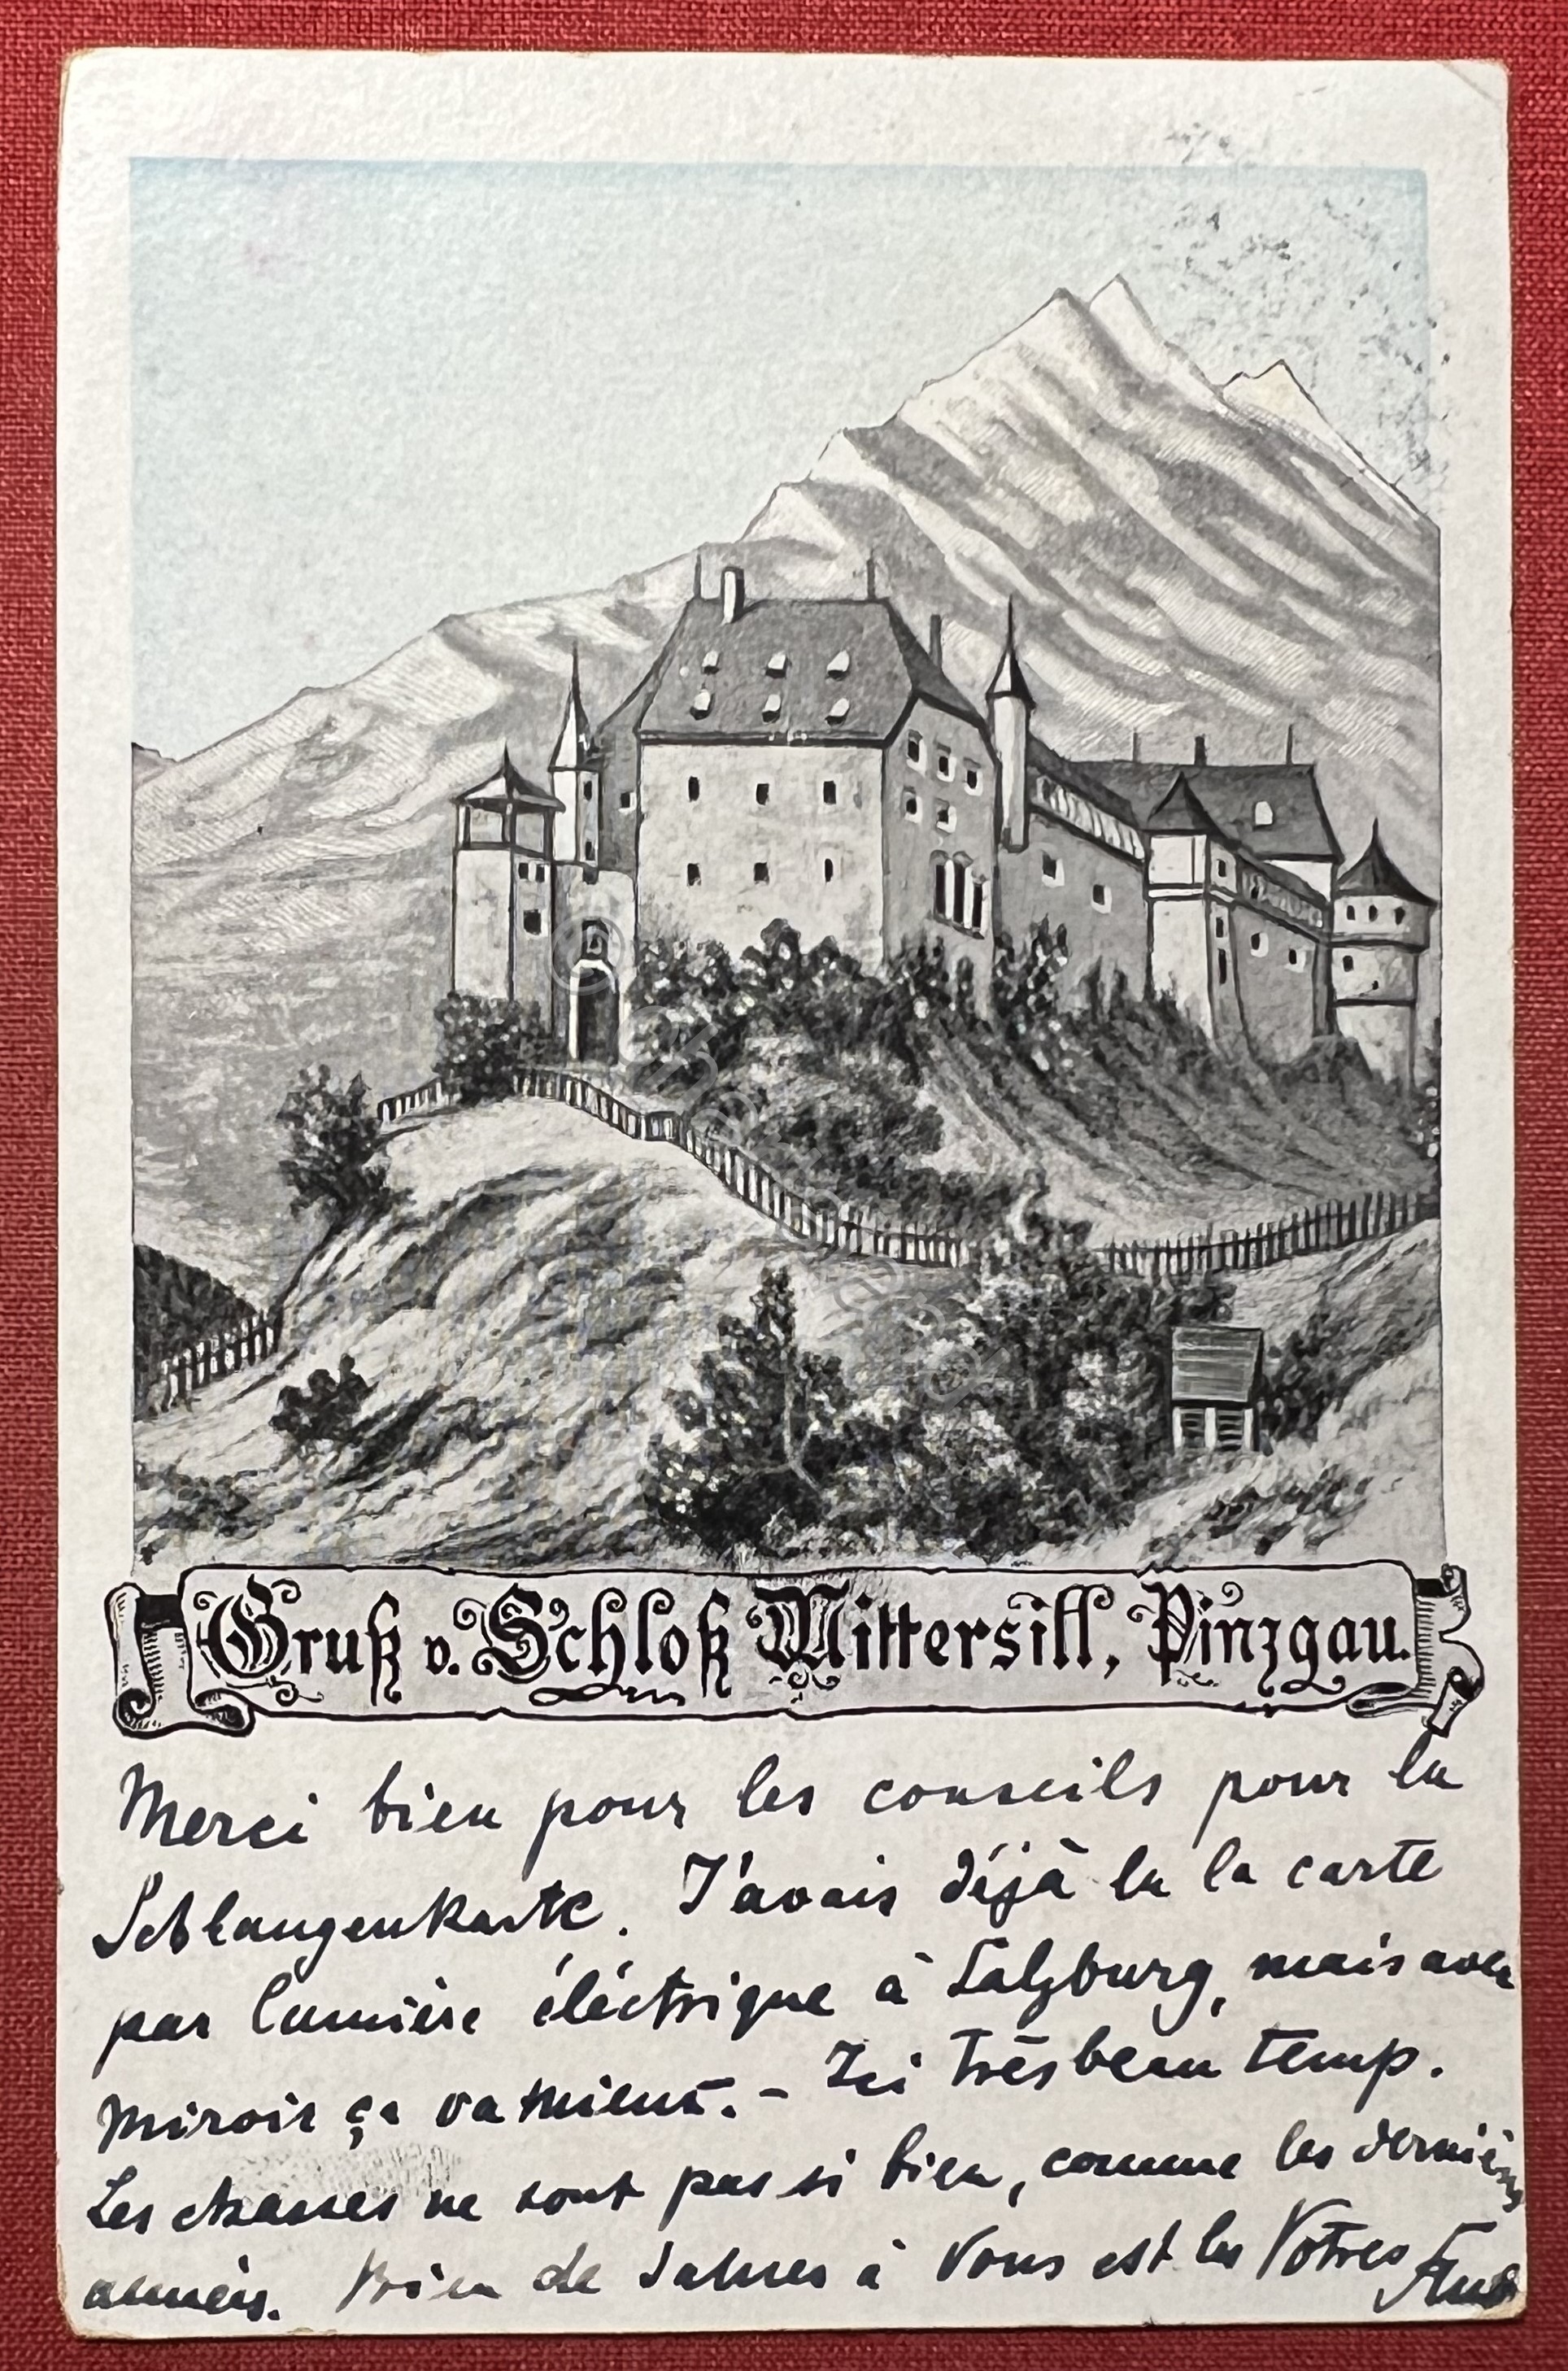 Gruß v. Schloß Mittersill, Pinzgau.
Merci bien pour les conseils pour la
Schlangenkarte. J'avais déjà lu la carte
par lumière éléctrique à Salzburg, mais avec
miroir ça va mieux. – Ici très beau temp.
Les chasses ne sont pas si bien, comme les dernières
années. Bien de salues à Vous est les Votres